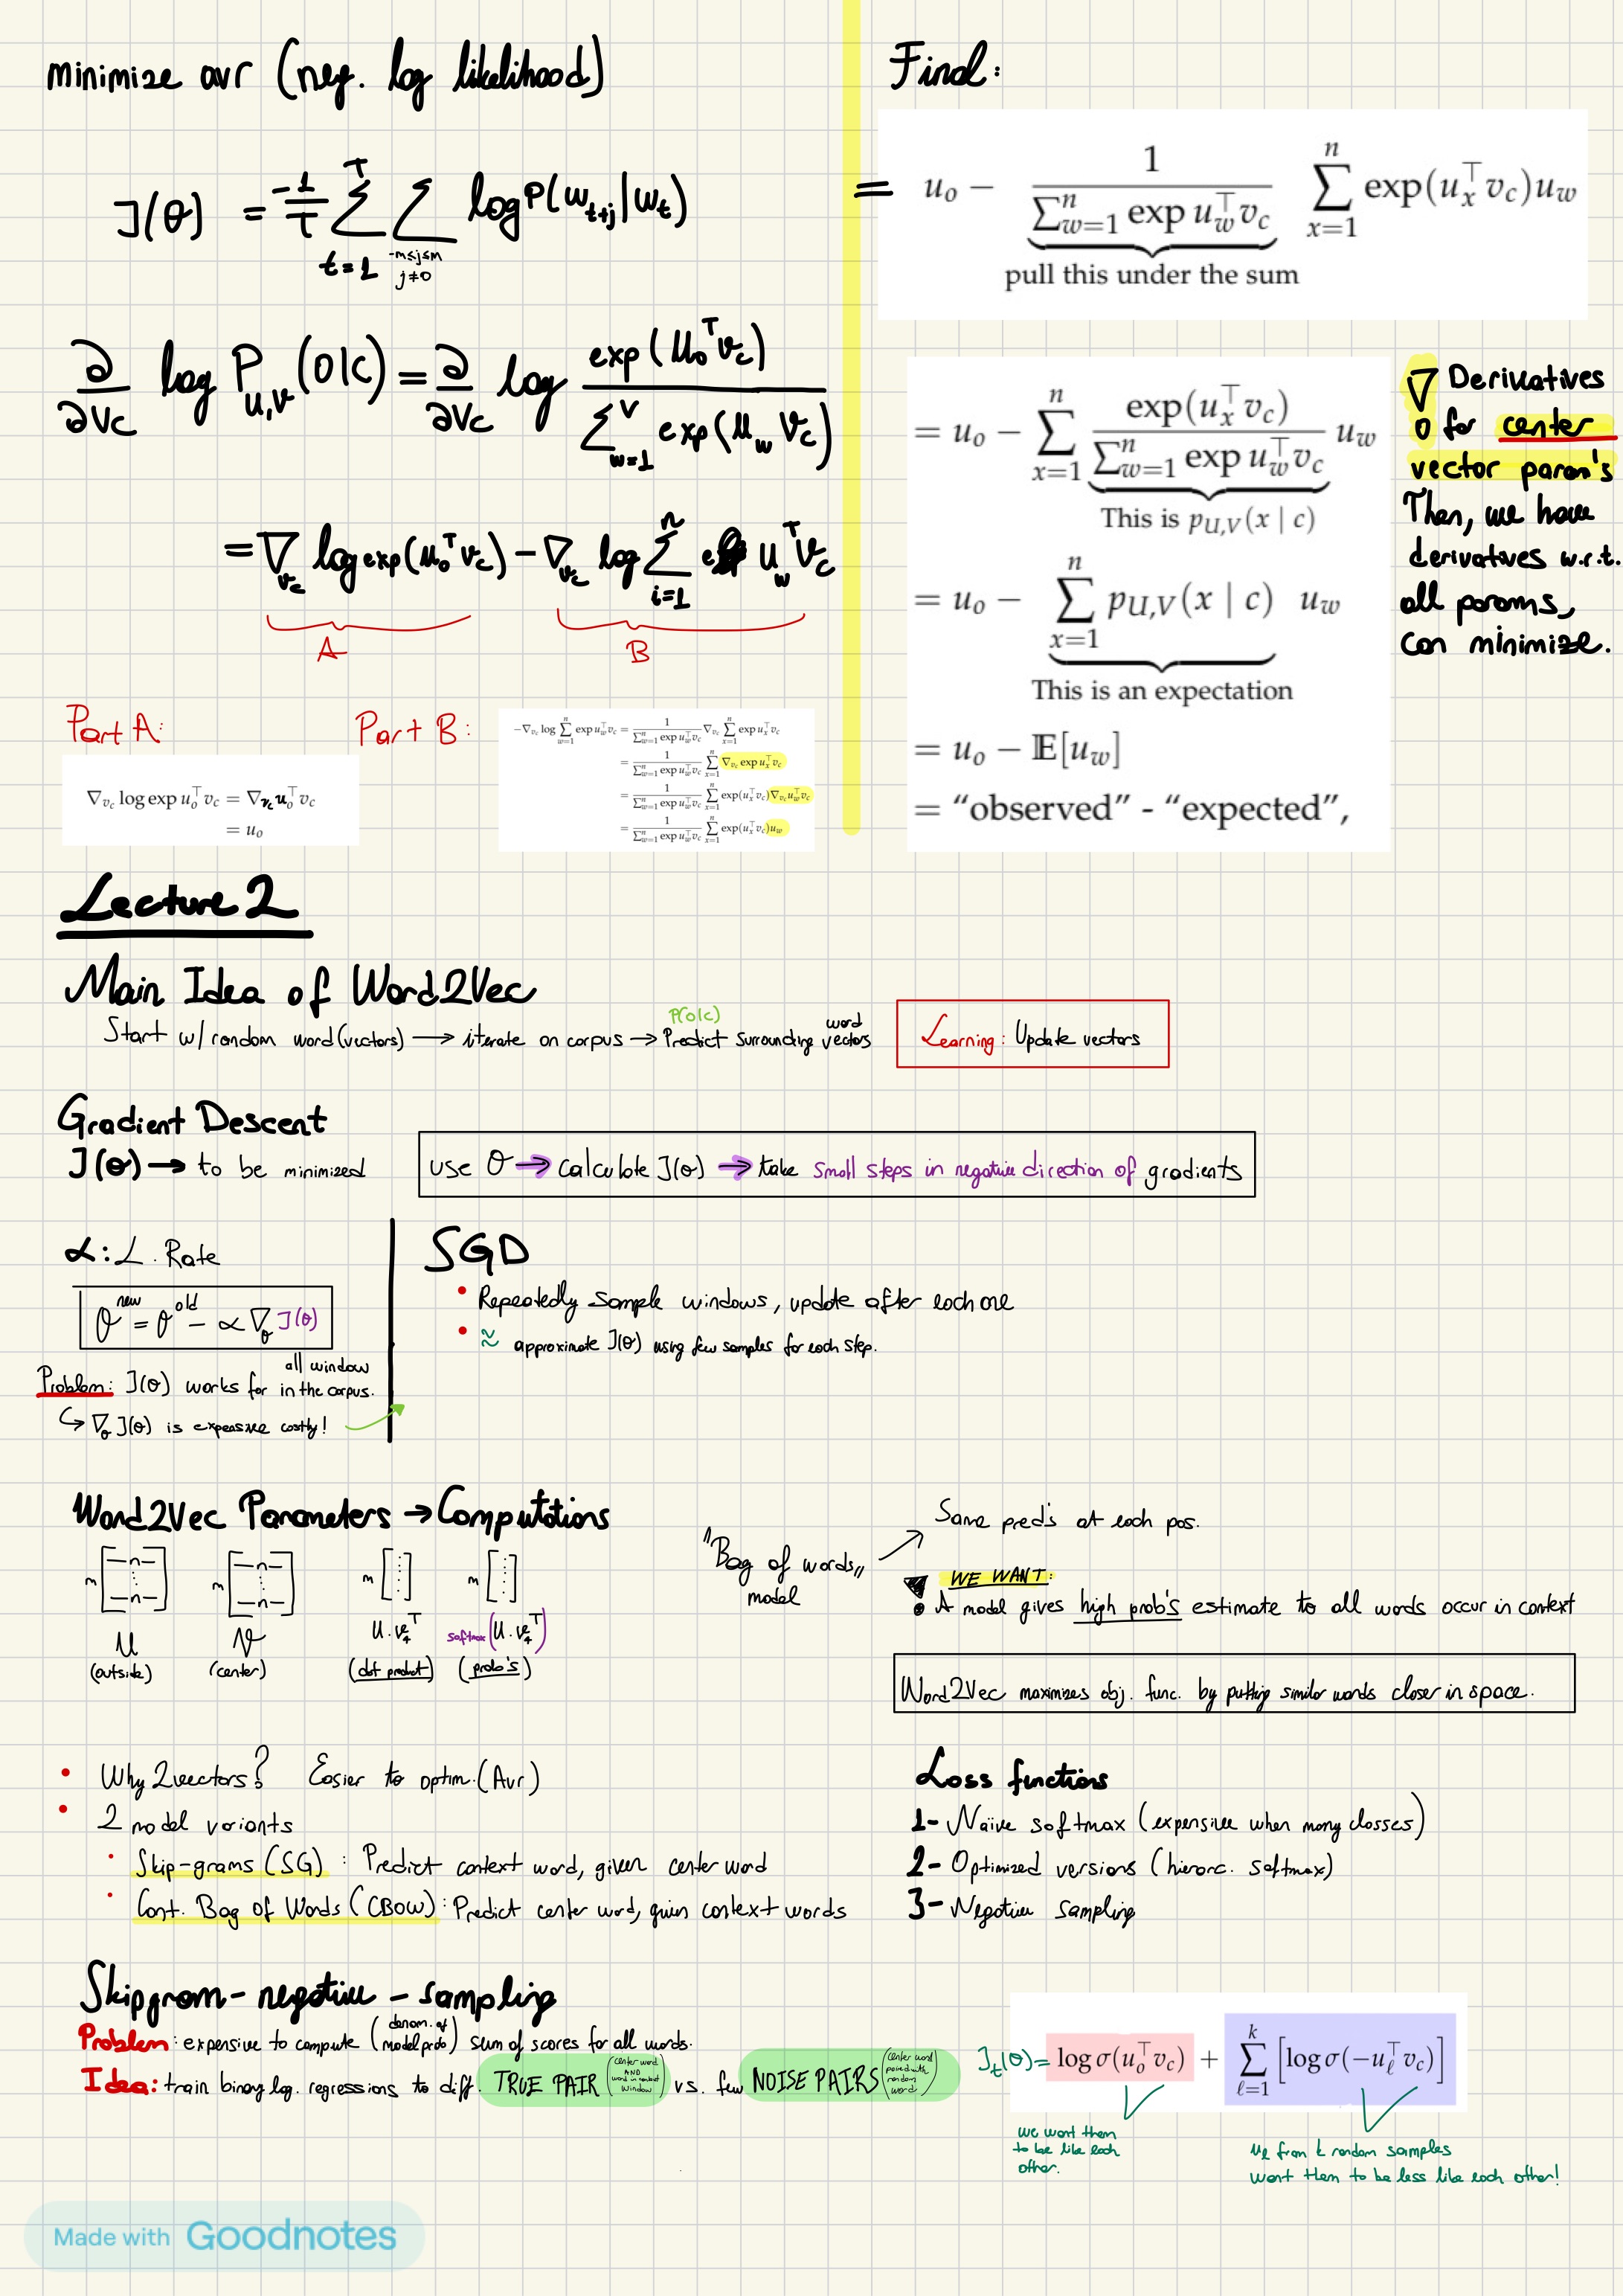 minimize avr (neg. log likelihood)
J(θ) = -1/T Σ_{t=1}^{T} Σ_{-m≤j≤m, j≠0} log P(w_{t+j}|w_t)
∂/∂v_c log P_{u,v}(o|c) = ∂/∂v_c log exp(u_o^T v_c) / Σ_{w=1}^{V} exp(u_w v_c)
= ∇_{v_c} log exp(u_o^T v_c) - ∇_{v_c} log Σ_{i=1}^{n} exp u_w^T v_c
A
B
Part A:
∇_{v_c} log exp u_o^⊤ v_c = ∇_{v_c} u_o^⊤ v_c
= u_o
Part B:
-∇_{v_c} log Σ_{w=1}^{n} exp u_w^⊤ v_c = 1/(Σ_{w=1}^{n} exp u_w^⊤ v_c) ∇_{v_c} Σ_{x=1}^{n} exp u_x^⊤ v_c
= 1/(Σ_{w=1}^{n} exp u_w^⊤ v_c) Σ_{x=1}^{n} ∇_{v_c} exp u_x^⊤ v_c
= 1/(Σ_{w=1}^{n} exp u_w^⊤ v_c) Σ_{x=1}^{n} exp(u_x^⊤ v_c) ∇_{v_c} u_w^⊤ v_c
= 1/(Σ_{w=1}^{n} exp u_w^⊤ v_c) Σ_{x=1}^{n} exp(u_x^⊤ v_c) u_w
Final:
= u_o - 1/(Σ_{w=1}^{n} exp u_w^⊤ v_c) Σ_{x=1}^{n} exp(u_x^⊤ v_c) u_w
pull this under the sum
= u_o - Σ_{x=1}^{n} exp(u_x^⊤ v_c)/(Σ_{w=1}^{n} exp u_w^⊤ v_c) u_w
This is p_{U,V}(x | c)
= u_o - Σ_{x=1}^{n} p_{U,V}(x | c) u_w
This is an expectation
= u_o - 𝔼[u_w]
= “observed” - “expected”,
Derivatives
for center
vector param's
Then, we have
derivatives w.r.t.
all params,
can minimize.
Lecture 2
Main Idea of Word2Vec
Start w/ random word (vectors) → iterate on corpus → Predict surrounding word vectors
P(o|c)
Learning: Update vectors
Gradient Descent
J(θ) → to be minimized
use θ → calculate J(θ) → take small steps in negative direction of gradients
α: L. Rate
θ^new = θ^old - α ∇_θ J(θ)
Problem: J(θ) works for all window in the corpus.
↳ ∇_θ J(θ) is expensive costly!
SGD
• Repeatedly sample windows, update after each one
• ≈ approximate J(θ) using few samples for each step.
Word2Vec Parameters → Computations
m [—n—]
m [—n—]
m [⋮]
m [⋮]
U
V
U.v_4^T
softmax(U.v_4^T)
(outside)
(center)
(dot product)
(prob's)
"Bag of words" model
Same preds at each pos.
WE WANT:
A model gives high prob's estimate to all words occur in context
Word2Vec maximizes obj. func. by putting similar words closer in space.
• Why 2 vectors? Easier to optim. (Avr)
• 2 model variants
• Skip-grams (SG) : Predict context word, given center word
• Cont. Bag of Words (CBOW): Predict center word, given context words
Loss functions
1- Naive softmax (expensive when many classes)
2- Optimized versions (hierarc. softmax)
3- Negative sampling
Skipgram - negative - sampling
Problem: expensive to compute (denom. of model prob) sum of scores for all words.
Idea: train binary log. regressions to diff. TRUE PAIR (center word AND word in context window) vs. few NOISE PAIRS (center word paired with random word)
J_t(θ) = log σ(u_o^⊤ v_c) + Σ_{ℓ=1}^{k} [log σ(-u_ℓ^⊤ v_c)]
we want them
to be like each
other.
u_ℓ from k random samples
want them to be less like each other!
Made with Goodnotes